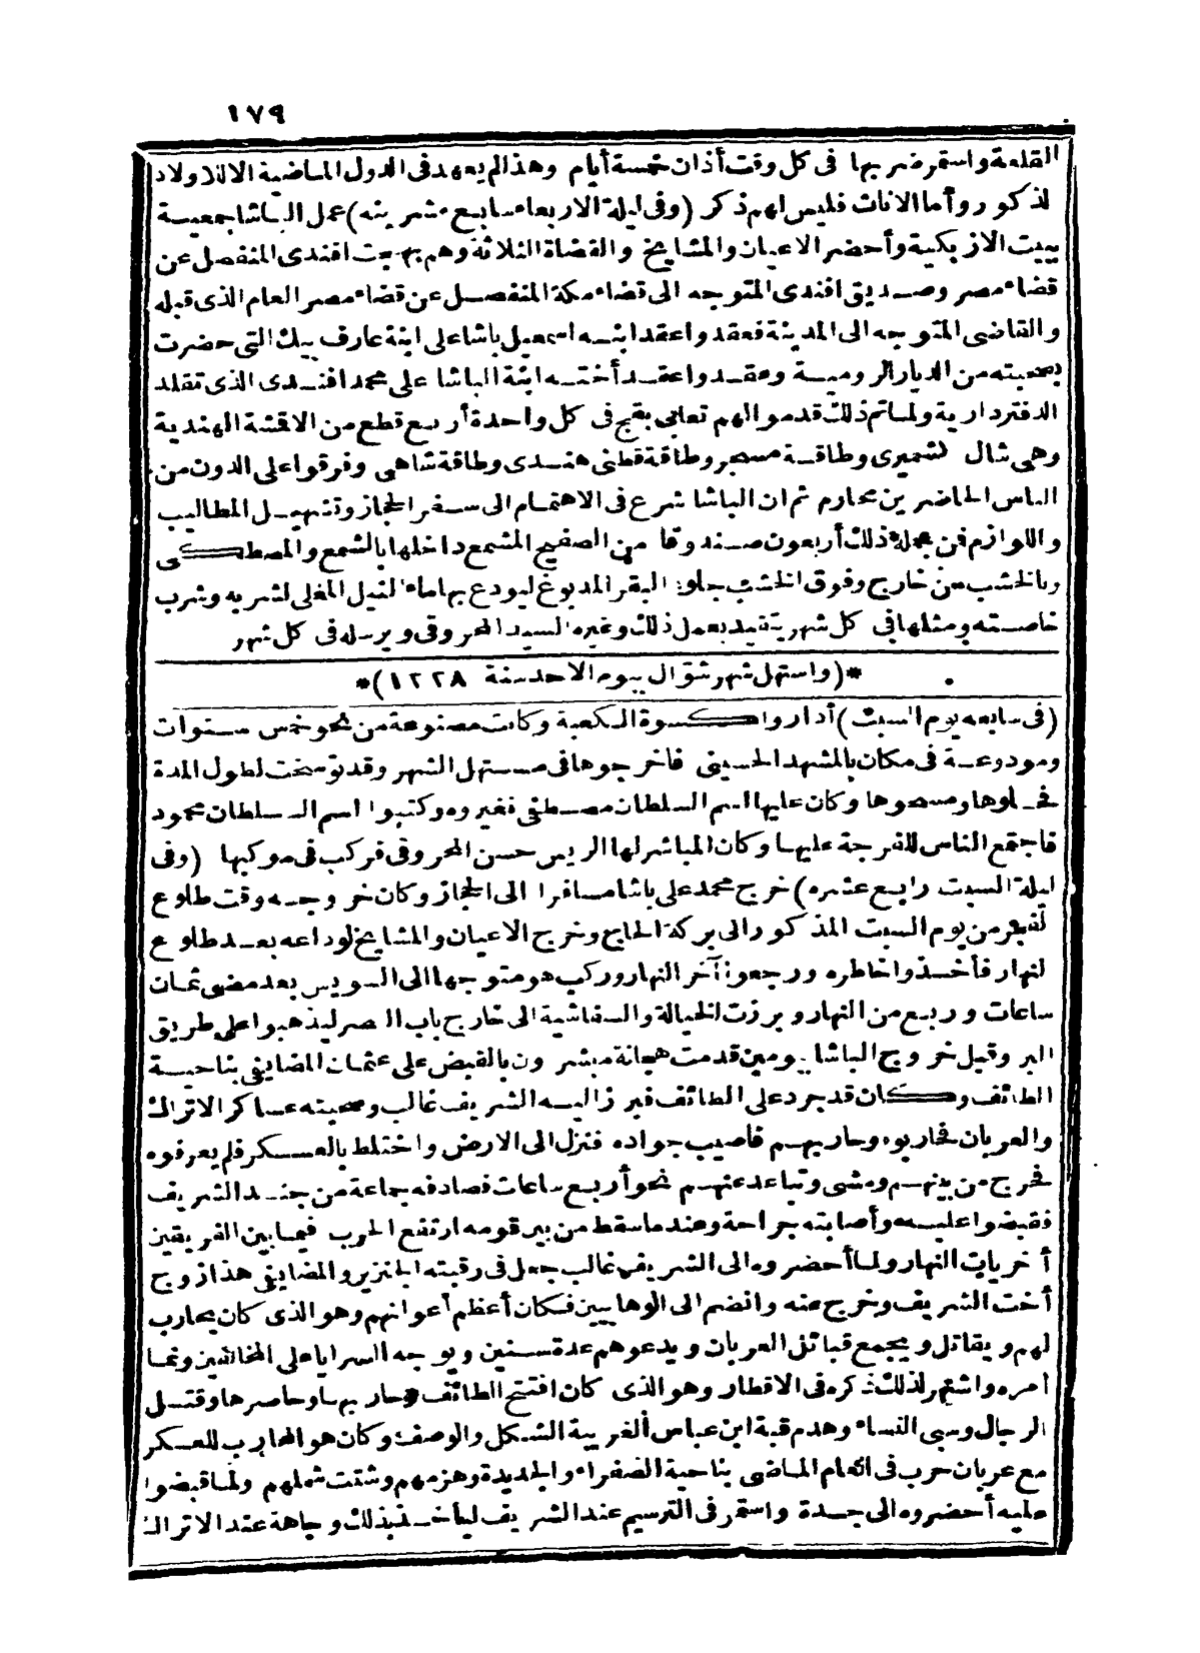 ١٧٩
القلعة واستمر ضربها فى كل وقت أذان خمسة أيام وهذا لم يعهد فى الدول الماضية الا للاولاد
لذكور وأما الاناث فليس لهم ذكر (وفى ليلة الاربعاء سابع عشرينه) عمل الباشا جمعية
ببيت الازبكية وأحضر الاعيان والمشايخ والقضاة الثلاثة وهم بهجت افندى المنفصل عن
قضاء مصر وصديق افندى المتوجه الى قضاء مكة المنفصل عن قضاء مصر العام الذى قبله
والقاضى المتوجه الى المدينة فعقدوا عقد ابنه اسمعيل باشا على ابنة عارف بيك التى حضرت
بصحبته من الديار الرومية وعقدوا عقد أخته ابنة الباشا على محمد افندى الذى تقلد
الدفتردارية ولما تم ذلك قدموا لهم تعابى بقج فى كل واحدة أربع قطع من الاقمشة الهندية
وهى شال كشميرى وطاقة مسجر وطاقة قطنى هندى وطاقة شاهى وفرقوا على الدون من
الناس الحاضرين محارم ثم ان الباشا شرع فى الاهتمام الى سفر الحجاز وتشهيل المطاليب
واللوازم فمن جملة ذلك أربعون صندوقا من الصفيح المشمع داخلها بالشمع والمصطكى
وبالخشب من خارج وفوق الخشب جلود البقر المدبوغ ليودع بها ماء النيل المغلى لشربه وشرب
خاصته ومثلها فى كل شهر يتقيد بعمل ذلك وغيره السيد المحروقى ويرسله فى كل شهر
*(واستهل شهر شوّال بيوم الاحد سنة ١٢٢٨)*
(فى سابعه يوم السبت) أداروا كسوة الكعبة وكانت مصنوعة من نحو خمس سنوات
ومودوعة فى مكان بالمشهد الحسينى فأخرجوها فى مستهل الشهر وقد توسخت لطول المدة
فحلوها ومسحوها وكان عليها اسم السلطان مصطفى فغيروه وكتبوا اسم السلطان محمود
فاجتمع الناس للفرجة عليها وكان المباشر لها الريس حسن المحروقى فركب فى موكبها (وفى
ليلة السبت رابع عشره) خرج محمد على باشا مسافرا الى الحجاز وكان خروجه وقت طلوع
لفجر من يوم السبت المذكور الى بركة الحاج وخرج الاعيان والمشايخ لوداعه بعد طلوع
لنهار فأخذوا خاطره ورجعوا آخر النهار وركب هو متوجها الى السويس بعد مضى ثمان
ساعات وربع من النهار وبرزت الخيالة والسفاشية الى خارج باب النصر ليذهبوا على طريق
البر وقبل خروج الباشا بيومين قدمت هجانة مبشرون بالقبض على عثمان المضايفى بناحية
الطائف وكان قد جرد على الطائف فبرز اليه الشريف غالب وصحبته عساكر الاتراك
والعربان فحاربوه وحاربهم فأصيب جواده فنزل الى الارض واختلط بالعسكر فلم يعرفوه
فخرج من بينهم ومشى وتباعد عنهم نحو أربع ساعات فصادفه جماعة من جند الشريف
فقبضوا عليه وأصابته جراحة وعندما سقط من بين قومه ارتفع الحرب فيما بين الفريقين
أخريات النهار ولما أحضروه الى الشريف غالب جعل فى رقبته الجنزير والمضايفى هذا زوج
أخت الشريف وخرج عنه وانضم الى الوهابيين فكان أعظم أعوانهم وهو الذى كان يحارب
لهم ويقاتل ويجمع قبائل العربان ويدعوهم عدة سنين ويوجه السرايا على المخالفين ونما
أمره واشتهر لذلك ذكره فى الاقطار وهو الذى كان افتتح الطائف وحاربها وحاصرها وقتل
الرجال وسبى النساء وهدم قبة ابن عباس الغريبة الشكل والوصف وكان هو المحارب للعسكر
مع عربان حرب فى العام الماضى بناحية الصفراء والجديدة وهزمهم وشتت شملهم ولما قبضوا
عليه أحضروه الى جدة واستمر فى الترسيم عند الشريف ليأخذ بذلك وجاهة عند الاتراك